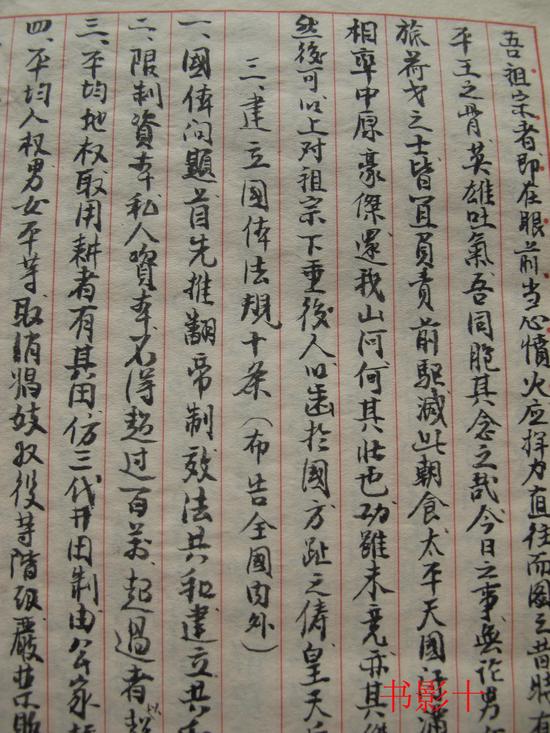 吾祖宗者即在眼前当心愤火应拌力直往而图之昔时有
平王之骨英雄吐氣吾同胞其念之哉今日之事無论男
旅荷戈之士皆宜負责前驱滅此朝食太平天國
相率中原豪傑還我山河何其壮也功雖未竟亦其
然後可以上对祖宗下垂後人以齒於國方趾之俦皇天
三、建立國体法規十条（布告全國内外）
一、國体问题首先推翻帝制效法共和建立共
二、限制資本私人資本不得超过百萬起過者
三、平均地权取用耕者有其田仿三代井田制由公家
四、平均人权男女平等取消娼妓奴役等階级嚴禁
书影十一